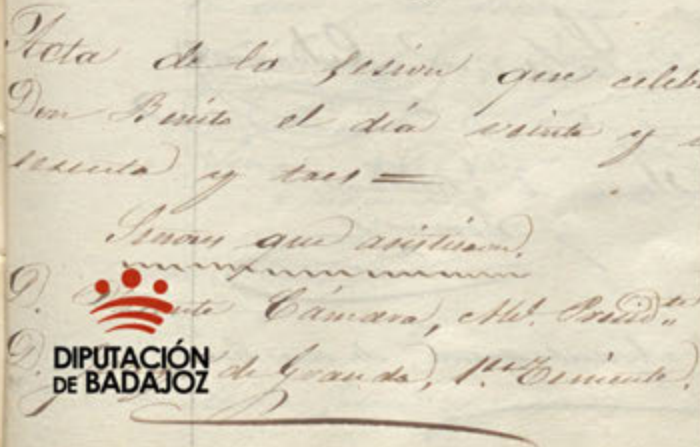 Acta de la sesion que celeb
Don Benito el dia veinte y
sesenta y tres =
Señores que asistieron.
D. Cámara, Alc. Presid.te
D. de Granda, 1.er Teniente.
DIPUTACIÓN
DE BADAJOZ